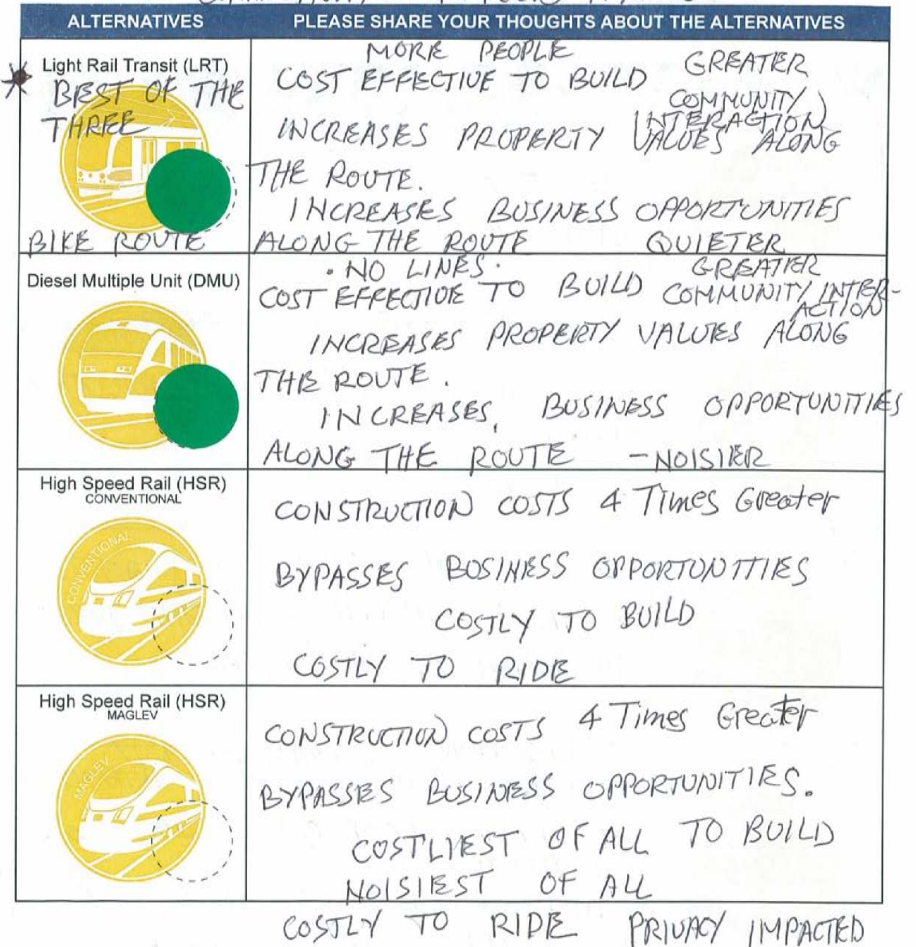 ALTERNATIVES
PLEASE SHARE YOUR THOUGHTS ABOUT THE ALTERNATIVES
Light Rail Transit (LRT)
BEST OF THE
THREE
BIKE ROUTE
MORE PEOPLE
COST EFFECTIVE TO BUILD GREATER
COMMUNITY
INTERACTION
INCREASES PROPERTY VALUES ALONG
THE ROUTE.
INCREASES BUSINESS OPPORTUNITIES
ALONG THE ROUTE QUIETER
Diesel Multiple Unit (DMU)
· NO LINES · GREATER
COST EFFECTIVE TO BUILD COMMUNITY INTER-
ACTION
INCREASES PROPERTY VALUES ALONG
THE ROUTE.
INCREASES, BUSINESS OPPORTUNITIES
ALONG THE ROUTE - NOISIER
High Speed Rail (HSR)
CONVENTIONAL
CONVENTIONAL
CONSTRUCTION COSTS 4 Times Greater
BYPASSES BUSINESS OPPORTUNITIES
COSTLY TO BUILD
COSTLY TO RIDE
High Speed Rail (HSR)
MAGLEV
MAGLEV
CONSTRUCTION COSTS 4 Times Greater
BYPASSES BUSINESS OPPORTUNITIES.
COSTLIEST OF ALL TO BUILD
NOISIEST OF ALL
COSTLY TO RIDE PRIVACY IMPACTED